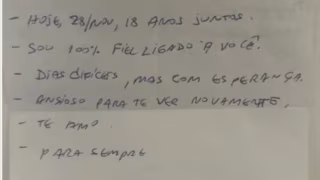 - HOJE, 28/NOV, 18 ANOS JUNTOS.
- SOU 100% FIEL LIGADO A VOCÊ.
- DIAS DIFÍCEIS, MAS COM ESPERANÇA.
- ANSIOSO PARA TE VER NOVAMENTE.
- TE AMO.
- PARA SEMPRE